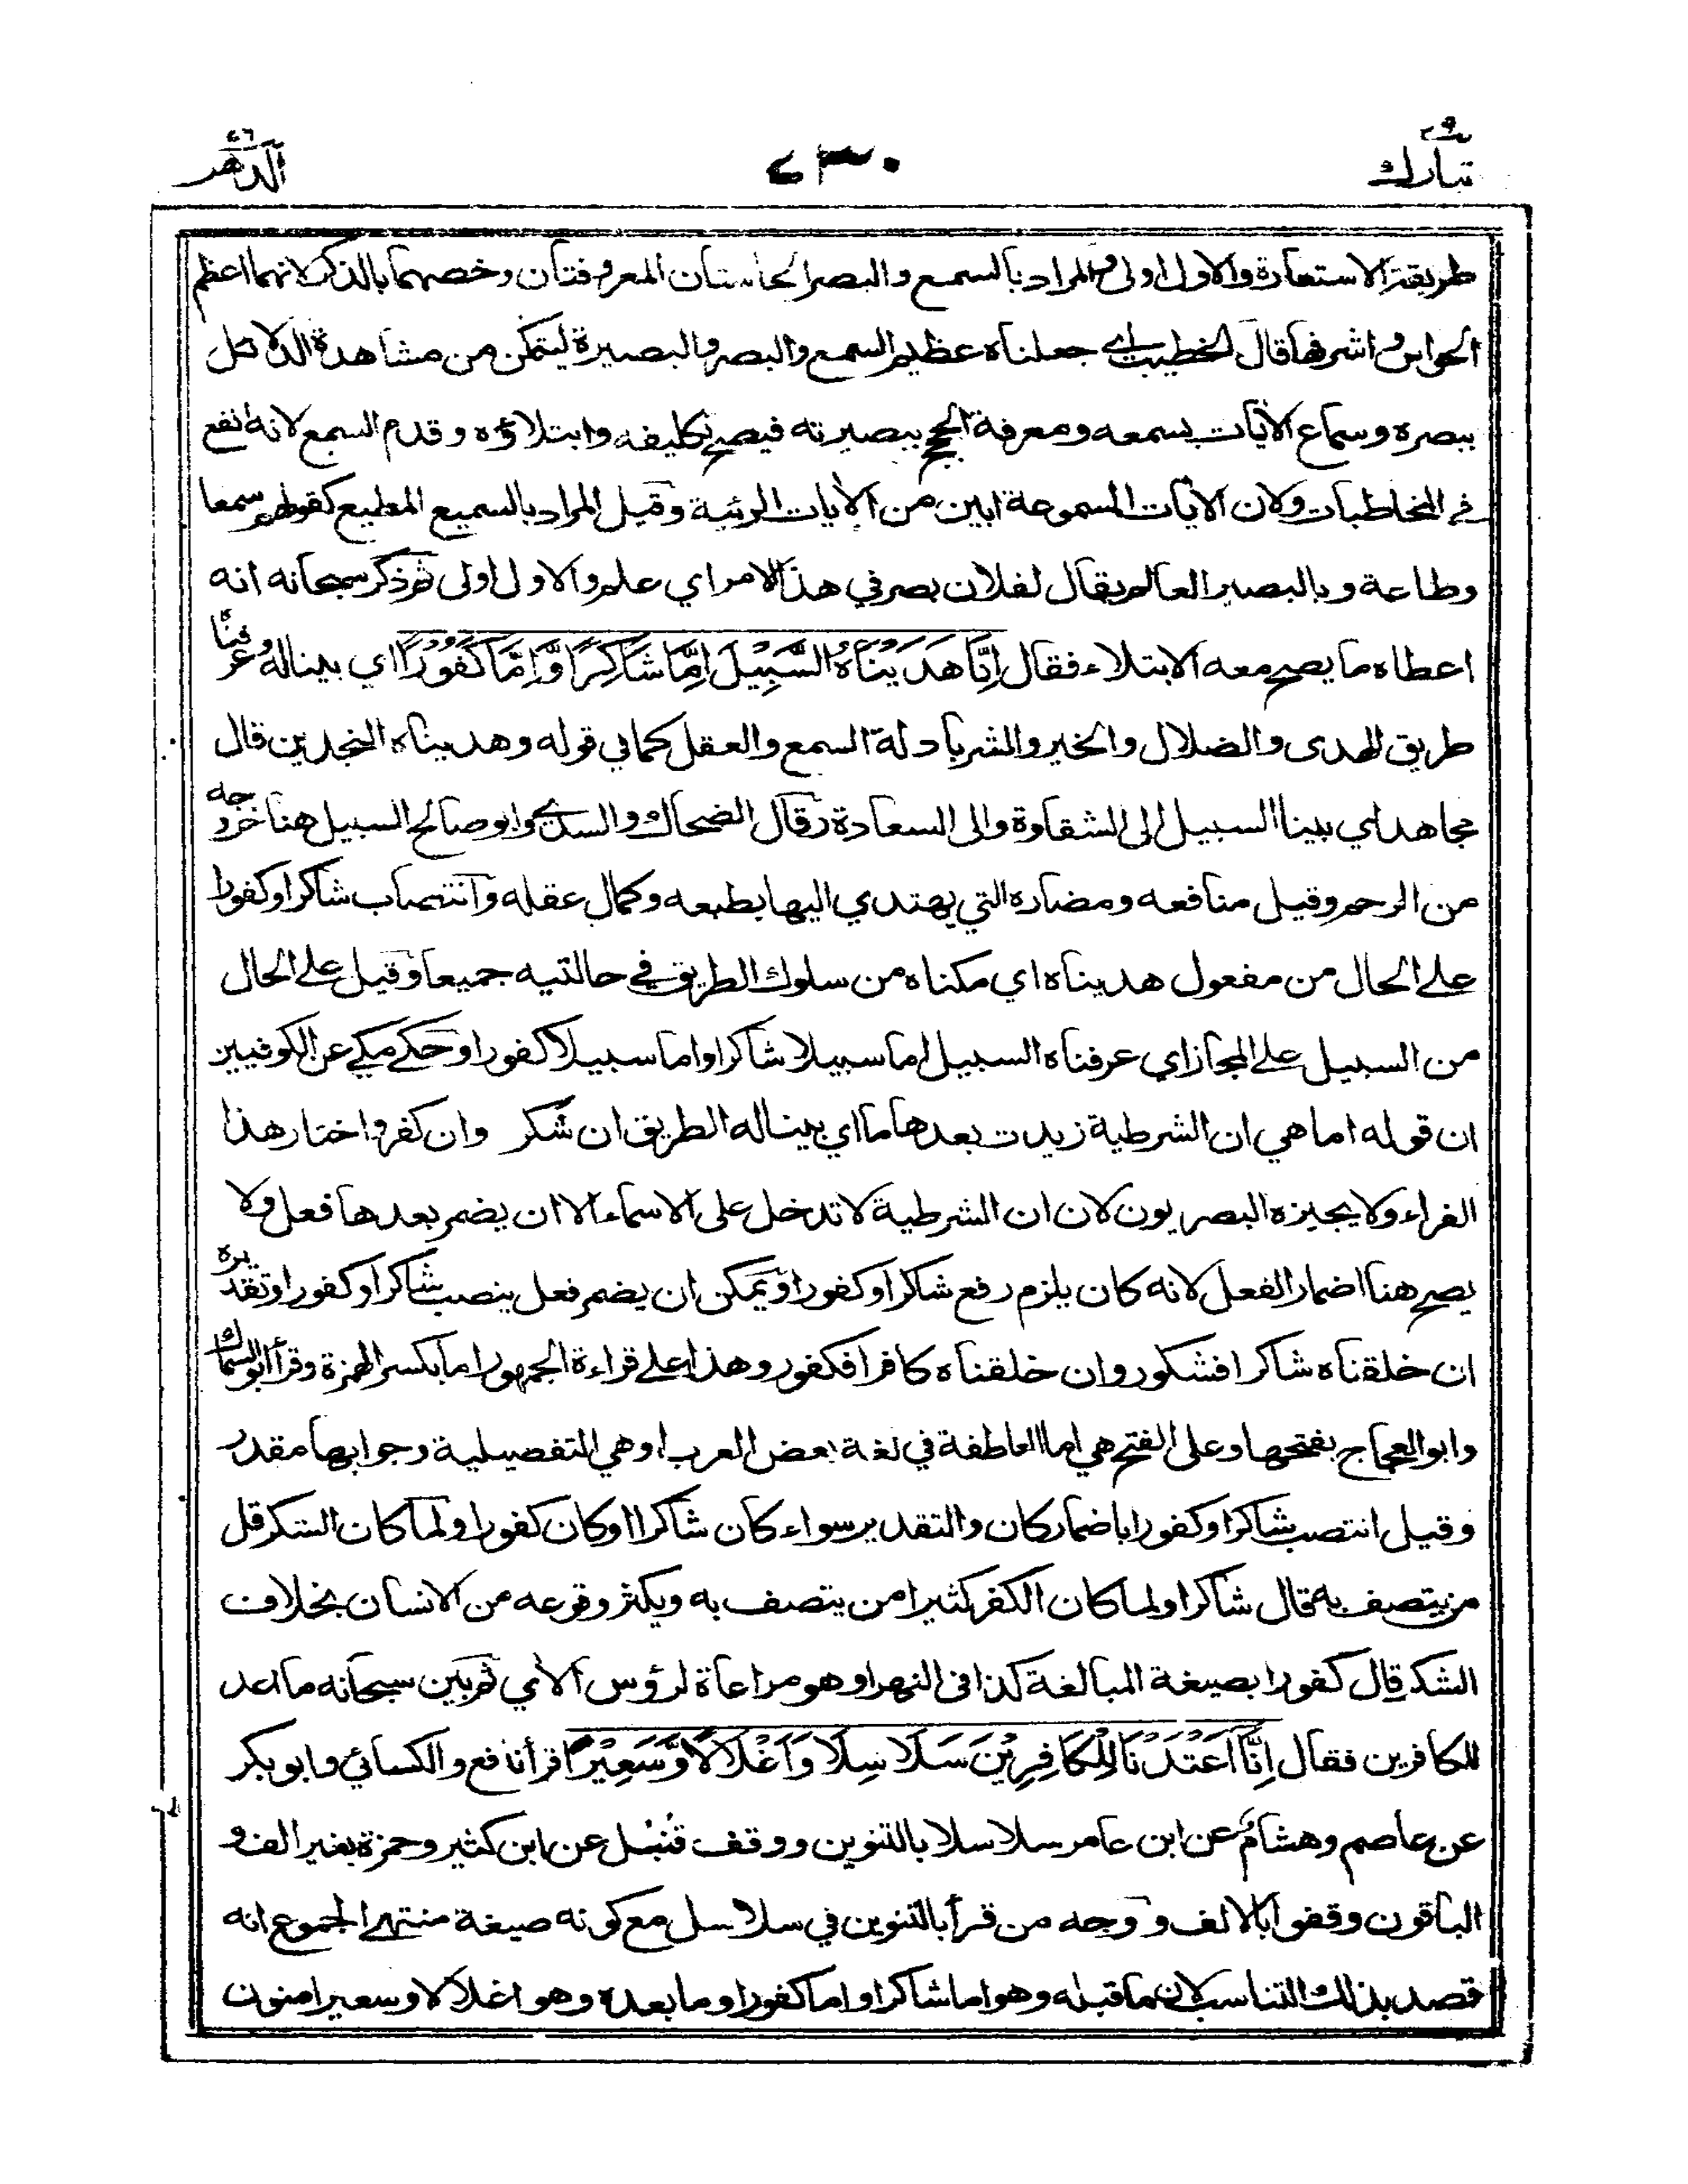 تبارك ٢٩
٤٣٠
الدهر ٧٦
طريقة الاستعارة والاول اولى والمراد بالسمع والبصر الحاستان المعروفتان وخصهما بالذكر لانهما اعظم
الحواس واشرفها قال الخطيب اي جعلناه عظيم السمع والبصر والبصيرة ليتمكن من مشاهدة الدلائل
ببصره وسماع الآيات بسمعه ومعرفة الحجج ببصيرته فيصح تكليفه وابتلاؤه وقدم السمع لانه انفع
في المخاطبات ولان الآيات المسموعة ابين من الآيات المرئية وقيل المراد بالسميع المطيع كقولهم سمعا
وطاعة وبالبصير العالم يقال لفلان بصر في هذا الامر اي علم والاول اولى ثم ذكر سبحانه انه
اعطاه ما يصح معه الابتلاء فقال اِنَّا هَدَيْنَاهُ السَّبِيْلَ اِمَّا شَاكِرًا وَّاِمَّا كَفُوْرًا اي بينا له وعرفناه
طريق الهدى والضلال والخير والشر بادلة السمع والعقل كما في قوله وهديناه النجدين قال
مجاهد اي بينا السبيل الى الشقاوة والى السعادة وقال الضحاك والسدي وابو صالح السبيل هنا خروجه
من الرحم وقيل منافعه ومضاره التي يهتدي اليها بطبعه وكمال عقله وانتصاب شاكرا وكفورا
على الحال من مفعول هديناه اي مكناه من سلوك الطريق في حالتيه جميعا وقيل على الحال
من السبيل على المجاز اي عرفناه السبيل اما سبيلا شاكرا واما سبيلا كفورا وحكى مكي عن الكوفيين
ان قوله اما هي ان الشرطية زيدت بعدها ما اي بينا له الطريق ان شكر وان كفر واختار هذا
الفراء ولا يجيزه البصريون لان ان الشرطية لا تدخل على الاسماء الا ان يضمر بعدها فعل ولا
يصح هنا اضمار الفعل لانه كان يلزم رفع شاكرا وكفورا ويمكن ان يضمر فعل ينصب شاكرا وكفورا وتقديره
ان خلقناه شاكرا فشكور وان خلقناه كافرا فكفور وهذا على قراءة الجمهور اما بكسر الهمزة وقرأ ابو السماك
وابو العجاج بفتحها وعلى الفتح هي اما العاطفة في لغة بعض العرب او هي التفصيلية وجوابها مقدر
وقيل انتصب شاكرا وكفورا باضمار كان والتقدير سواء كان شاكرا او كان كفورا ولما كان الشكر قل
من يتصف به قال شاكرا ولما كان الكفر كثيرا من يتصف به ويكثر وقوعه من الانسان بخلاف
الشكر قال كفورا بصيغة المبالغة كذا في النهر او هو مراعاة لرؤس الآي ثم بين سبحانه ما اعد
للكافرين فقال اِنَّا اَعْتَدْنَا لِلْكَافِرِيْنَ سَلَاسِلَا وَاَغْلَالًا وَّسَعِيْرًا قرأ نافع والكسائي وابو بكر
عن عاصم وهشام عن ابن عامر سلاسلا بالتنوين ووقف قنبل عن ابن كثير وحمزة بغير الف و
الباقون وقفوا بالالف ووجه من قرأ بالتنوين في سلاسل مع كونه صيغة منتهى الجموع انه
قصد بذلك التناسب لان ما قبله وهو اما شاكرا واما كفورا وما بعده وهو اغلالا وسعيرا منون